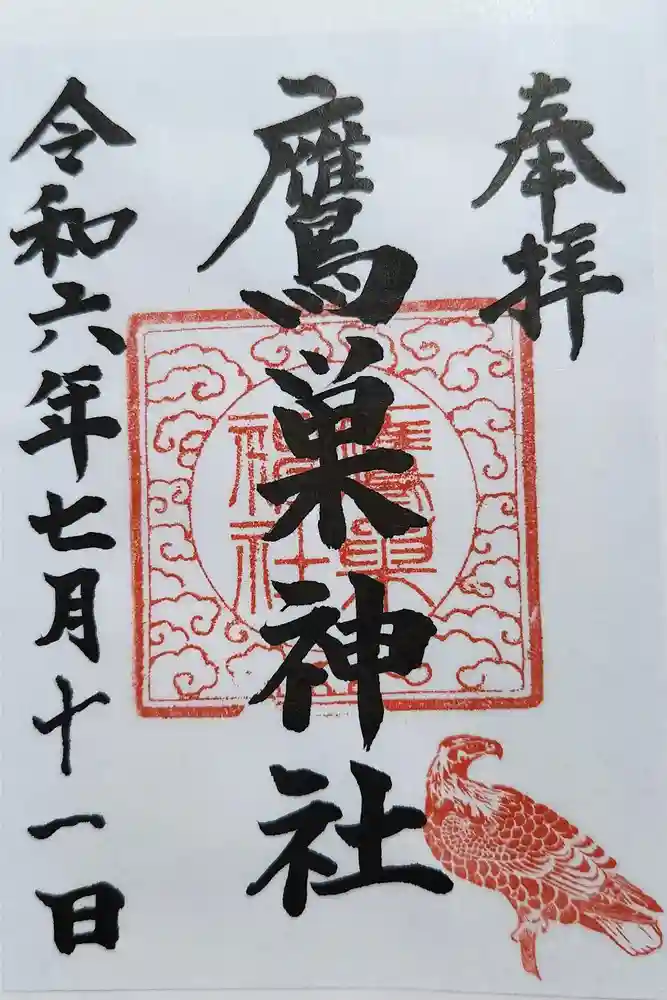 奉拝
鷹巣神社
鷹巣神社
令和六年七月十一日